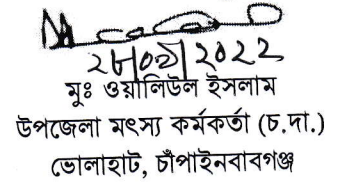 ২৮/০৯/২০২২
মুঃ ওয়ালিউল ইসলাম
উপজেলা মৎস্য কর্মকর্তা (চ.দা.)
ভোলাহাট, চাঁপাইনবাবগঞ্জ